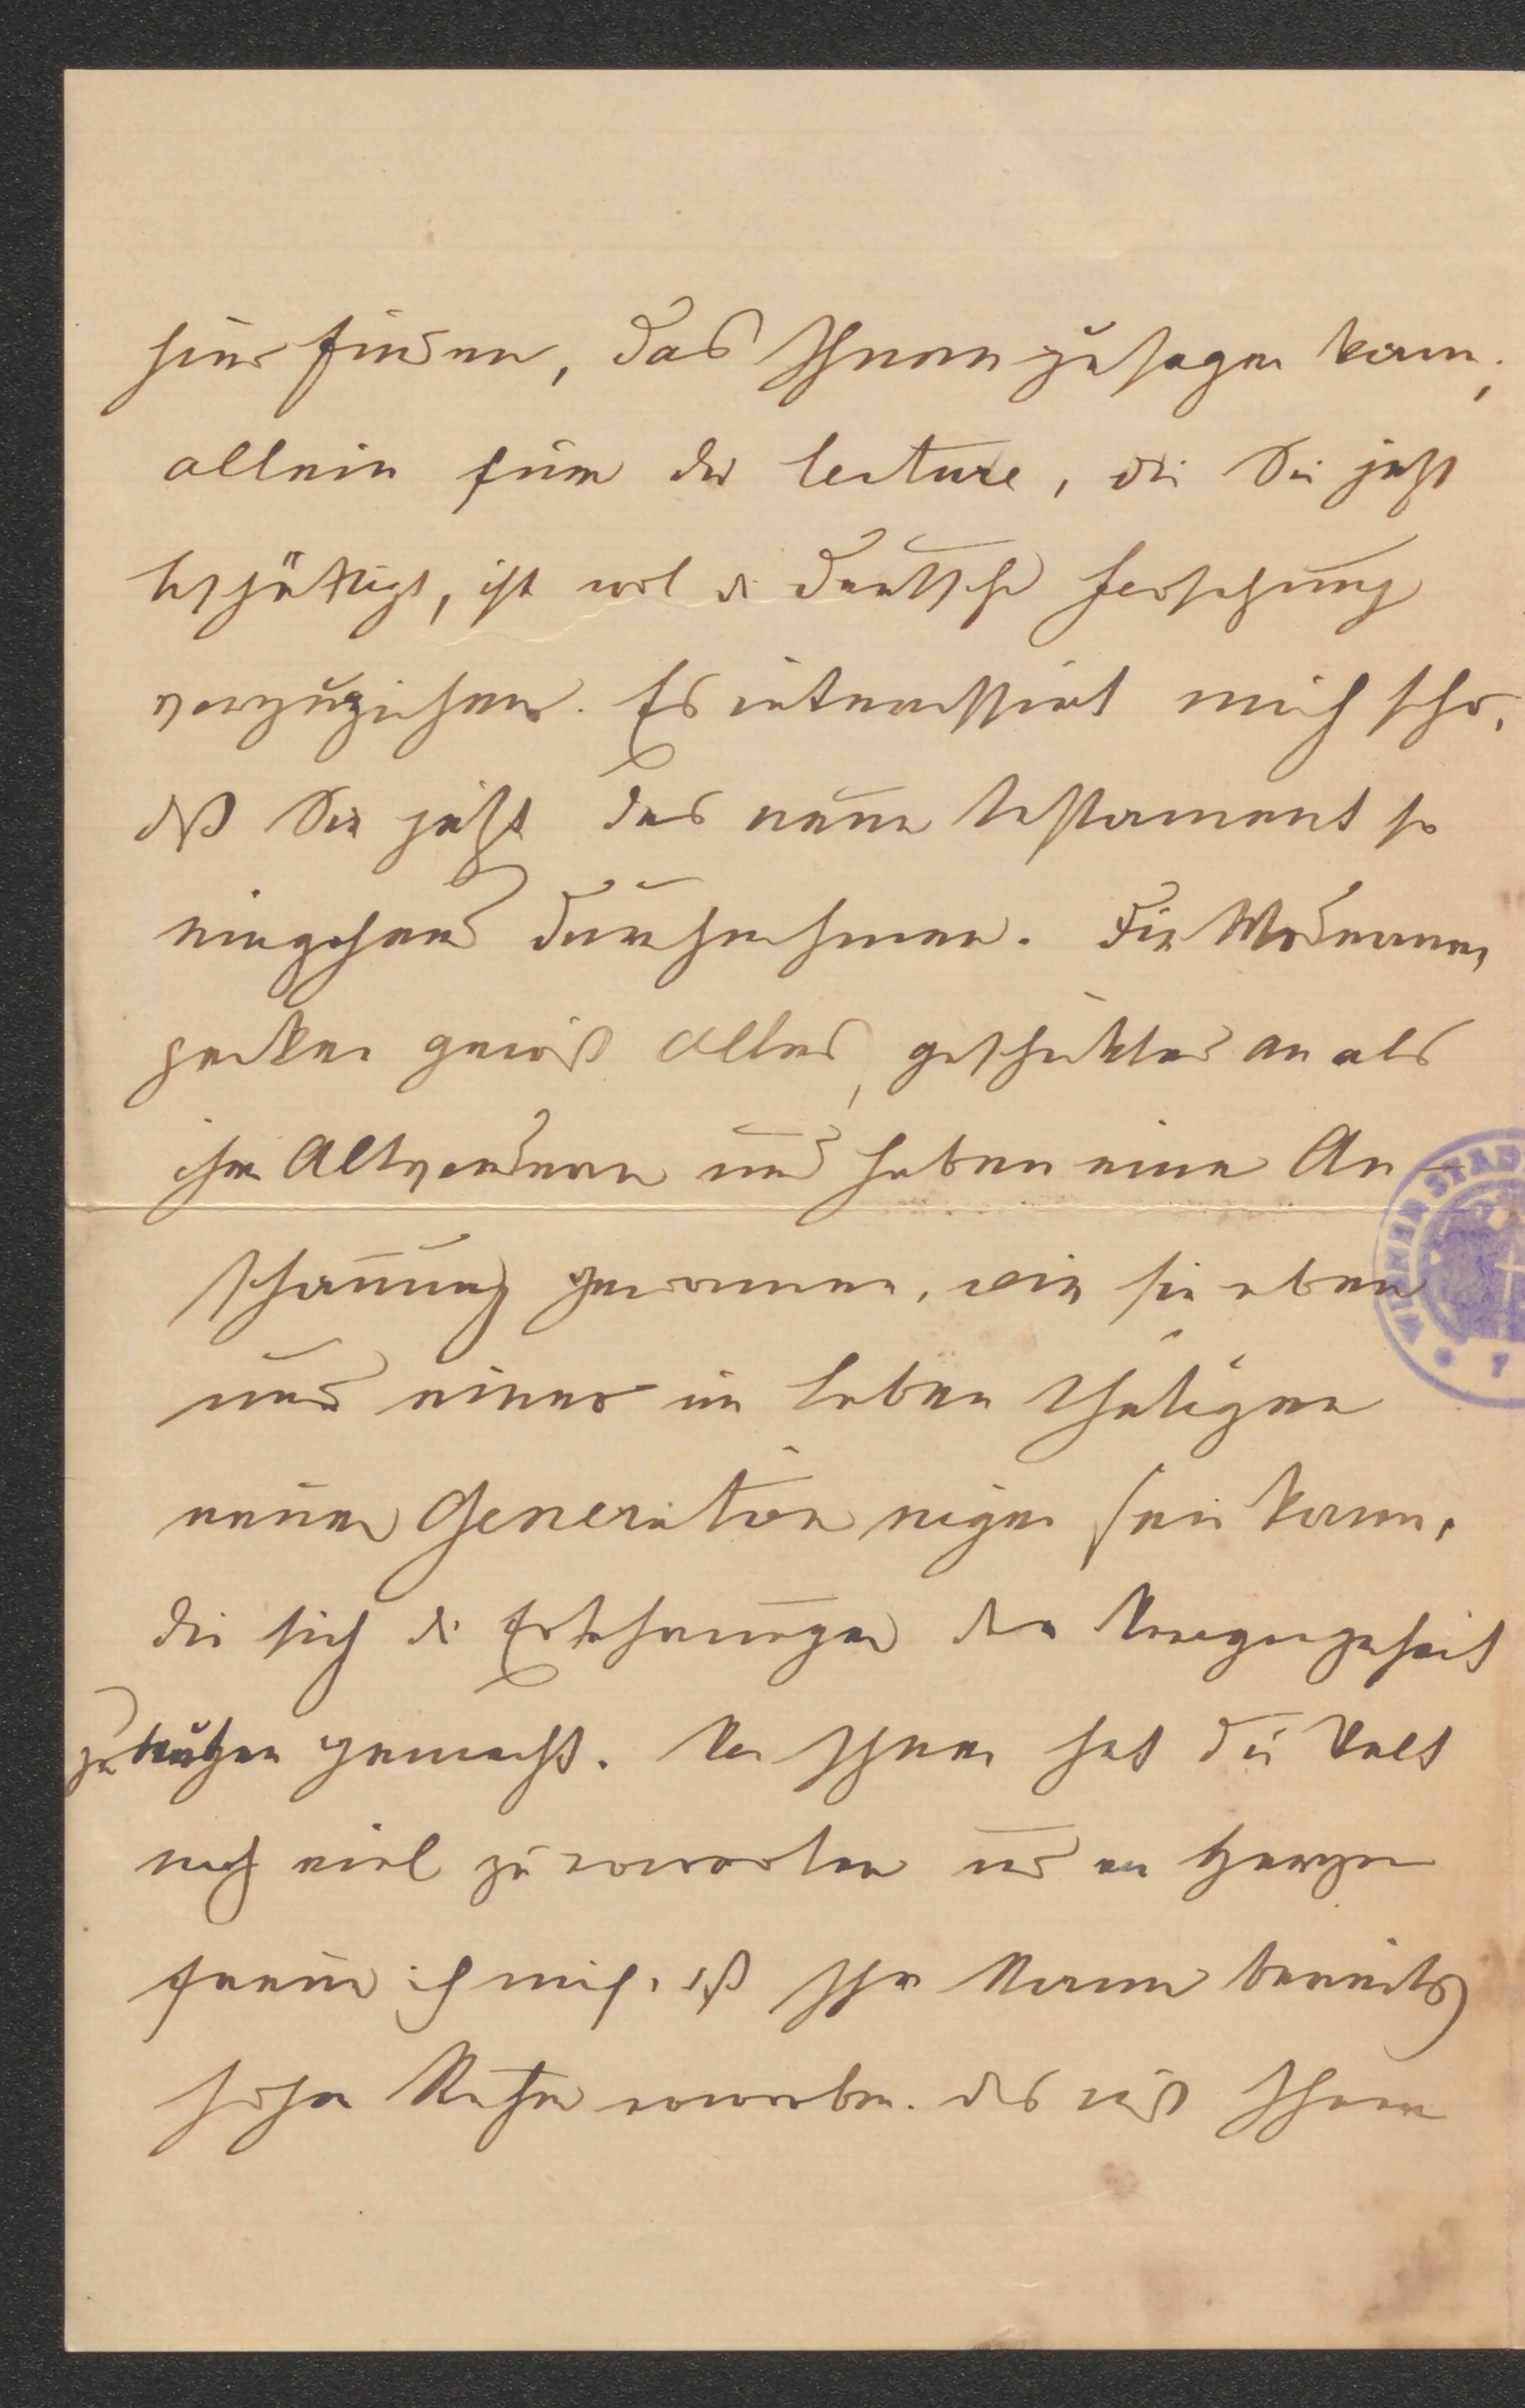 hier finden, das Ihnen zusagen kann;
allein für die lecture, die Sie jetzt
beschäftigt, ist wol die deutsche Forschung
vorzuziehen. Es interessirt mich sehr,
daß Sie jetzt das neue Testament so
eingehend durchnehmen. Die Modernen
packen gewiß Alles geschickter an als
ihre Altvordern und haben eine An-
schauung gewonnen, wie sie eben
nur einer im Leben thätigen
neuen Generation eigen sein kann,
die sich die Erfahrungen der Vergangenheit
zu nutzen gemacht. Von Ihnen hat die Welt
noch viel zu erwarten und von Herzen
freue ich mich, daß Ihr Name bereits
hohen Ruhm erworben. Das muß Ihnen
WIENER STAD